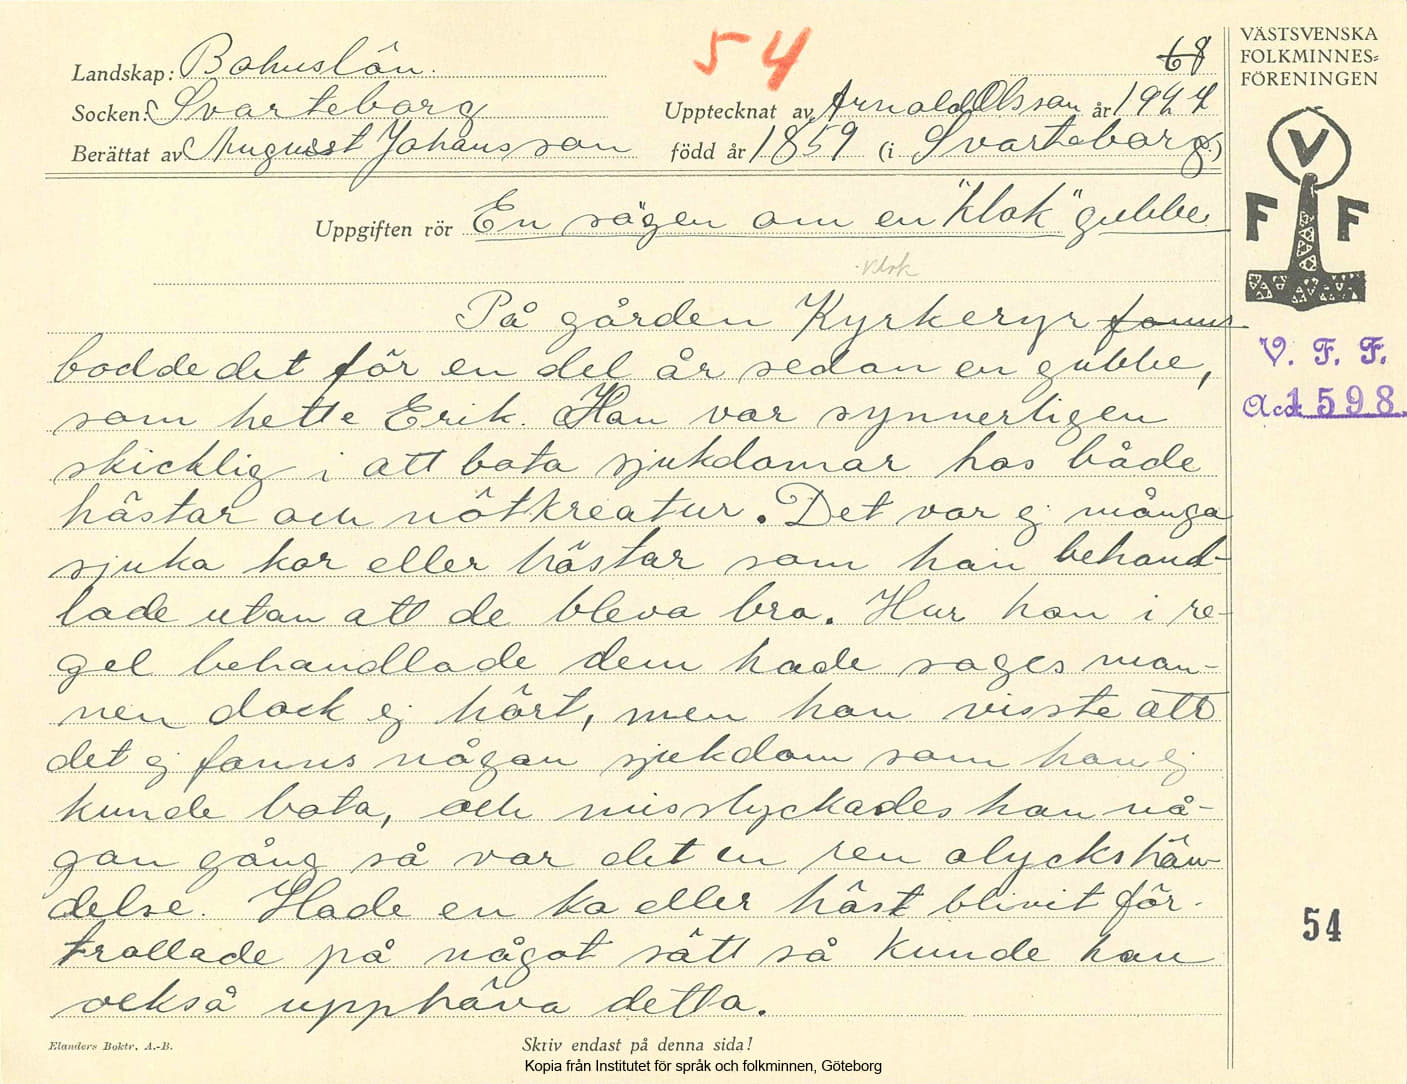 54
68
VÄSTSVENSKA
FOLKMINNES-
FÖRENINGEN
Landskap: Bohuslän.
Socken: Svarteborg
Upptecknat av Arnold Olsson år 1924
Berättat av August Johansson
född år 1859 (i Svarteborg.)
V
F F
Uppgiften rör En sägen om en "klok" gubbe.
klok
På gården Kyrkeryr fanns
bodde det för en del år sedan en gubbe,
som hette Erik. Han var synnerligen
skicklig i att bota sjukdomar hos både
hästar och nötkreatur. Det var ej många
sjuka kor eller hästar som han behand-
lade utan att de bleva bra. Hur han i re-
gel behandlade dem hade sages man-
nen dock ej hört, men han visste att
det ej fanns någon sjukdom som han ej
kunde bota, och misslyckades han nå-
gon gång så var det en ren olyckshän-
delse. Hade en ko eller häst blivit för-
trollade på något sätt så kunde han
också upphäva detta.
V. F. F.
Acc. 1598.
54
Elanders Boktr. A.-B.
Skriv endast på denna sida!
Kopia från Institutet för språk och folkminnen, Göteborg